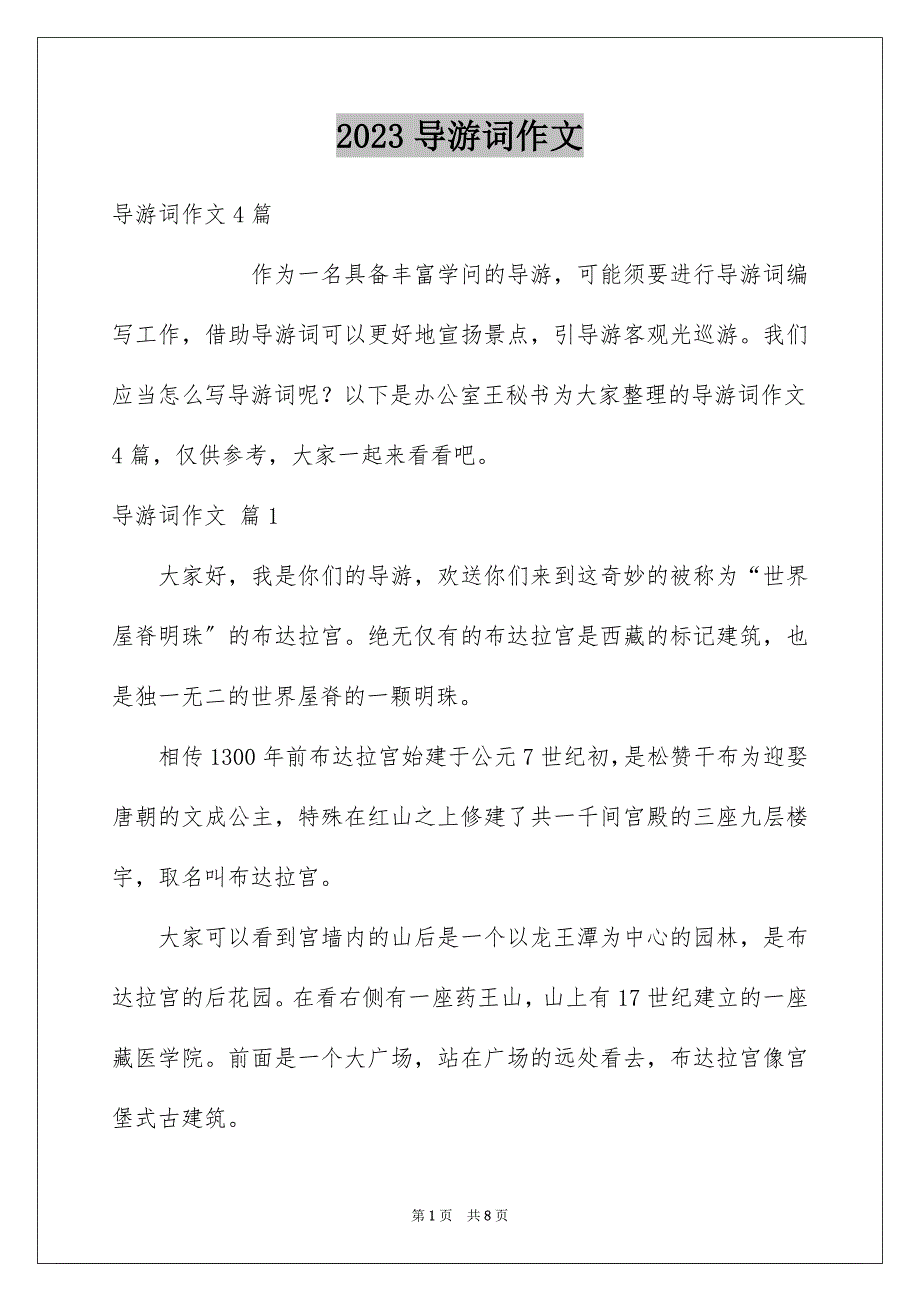 2023导游词作文
导游词作文4篇
作为一名具备丰富学问的导游，可能须要进行导游词编
写工作，借助导游词可以更好地宣扬景点，引导游客观光巡游。我们
应当怎么写导游词呢？以下是办公室王秘书为大家整理的导游词作文
4篇，仅供参考，大家一起来看看吧。
导游词作文 篇1
大家好，我是你们的导游，欢送你们来到这奇妙的被称为“世界
屋脊明珠〞的布达拉宫。绝无仅有的布达拉宫是西藏的标记建筑，也
是独一无二的世界屋脊的一颗明珠。
相传1300年前布达拉宫始建于公元7世纪初,是松赞干布为迎娶
唐朝的文成公主，特殊在红山之上修建了共一千间宫殿的三座九层楼
宇，取名叫布达拉宫。
大家可以看到宫墙内的山后是一个以龙王潭为中心的园林，是布
达拉宫的后花园。在看右侧有一座药王山，山上有17世纪建立的一座
藏医学院。前面是一个大广场，站在广场的远处看去，布达拉宫像宫
堡式古建筑。
第1页 共8页